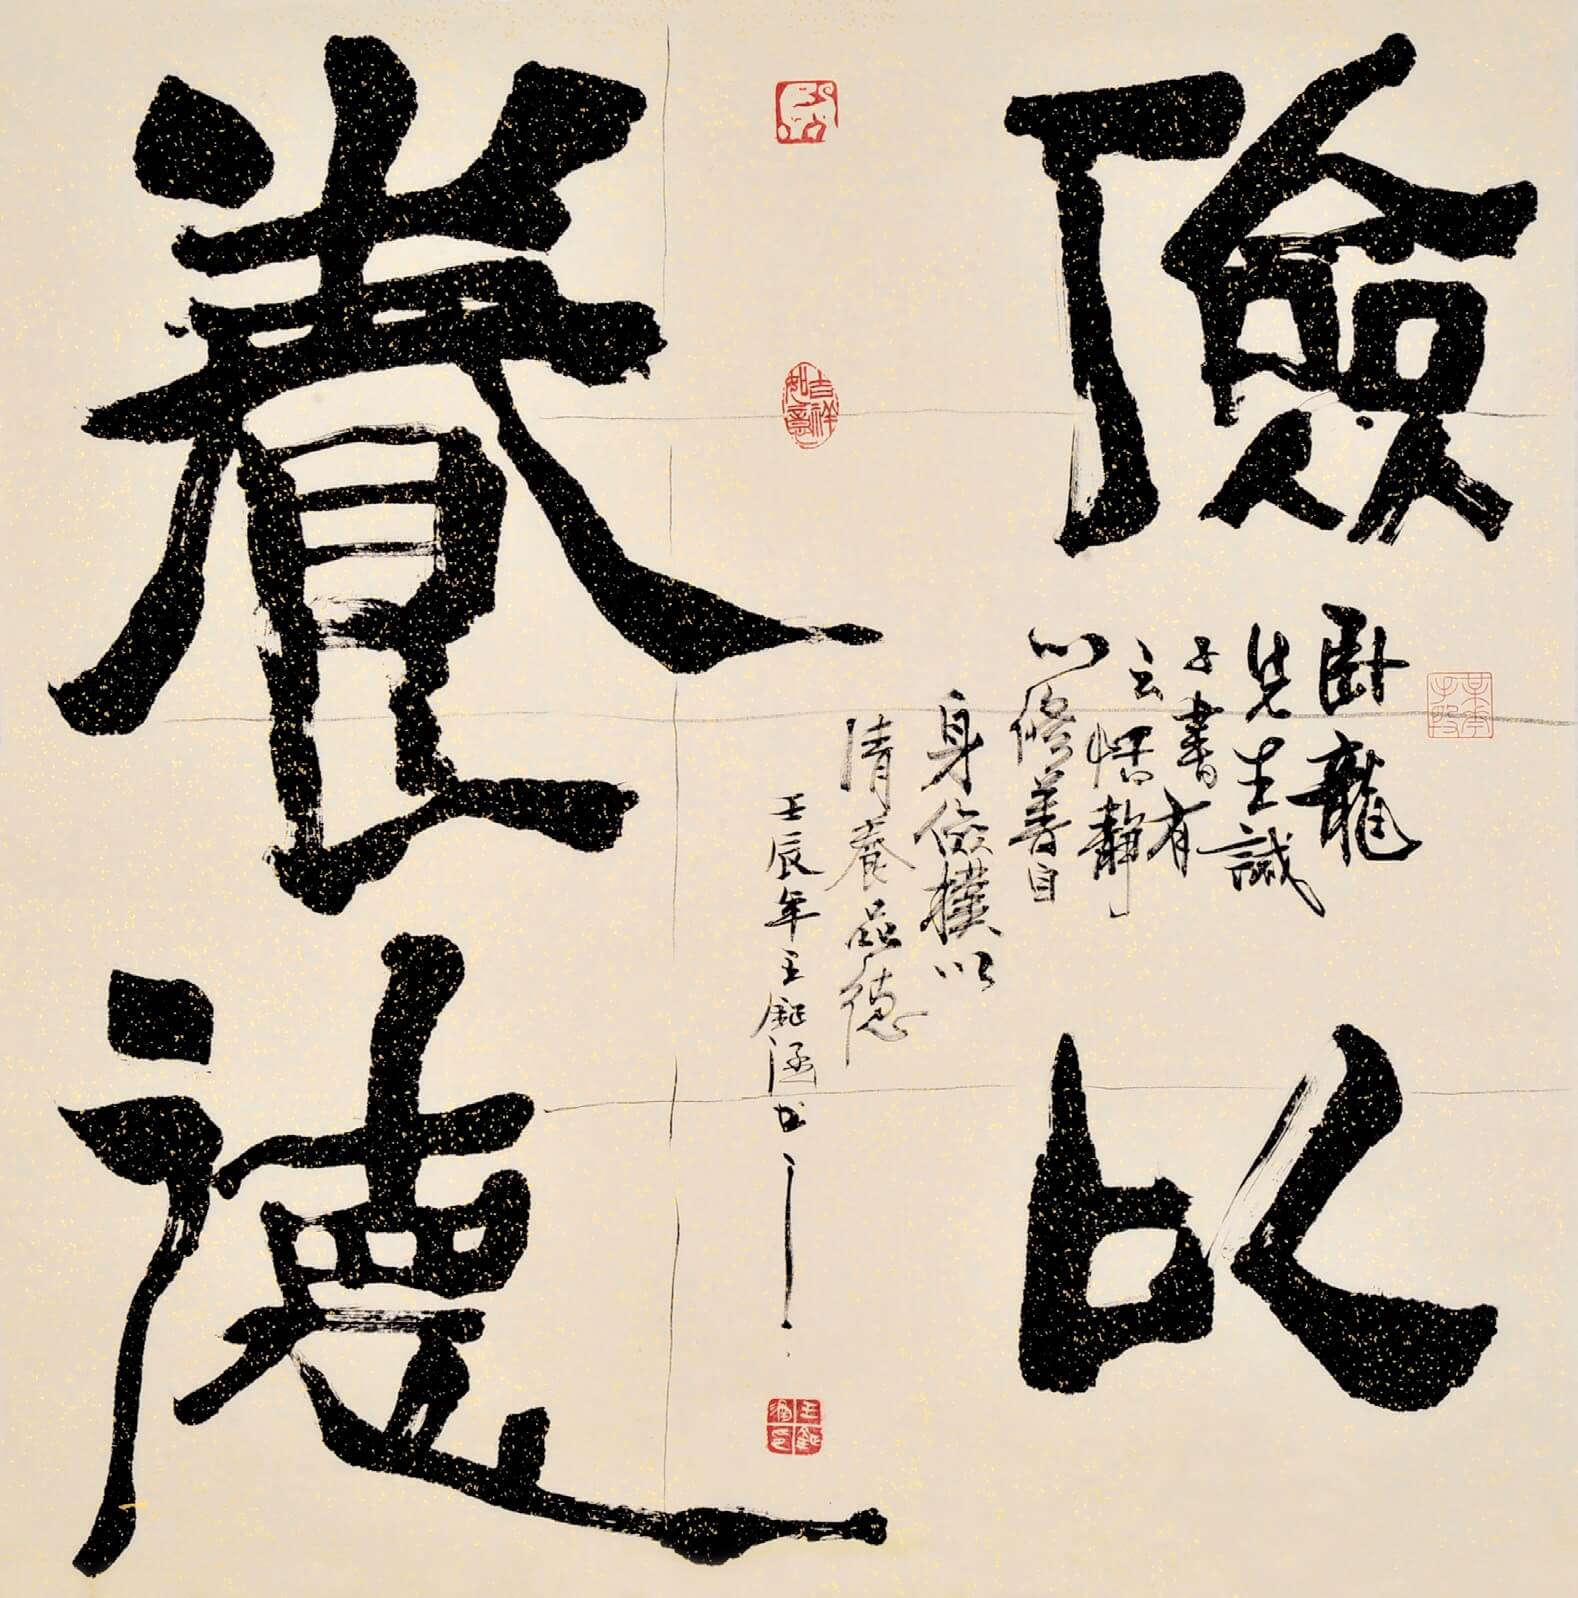 儉以
養德
卧龍
先生誡
子書有
云恬靜
以修善自
身儉樸以
清養品德
壬辰年王涵书
吉祥如意